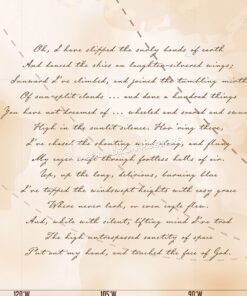 Oh, I have slipped the surly bonds of earth
And danced the skies on laughter-silvered wings;
Sunward I've climbed, and joined the tumbling mirth
Of sun-split clouds ... and done a hundred things
You have not dreamed of ... wheeled and soared and swung
High in the sunlit silence. Hov'ring there,
I've chased the shouting wind along, and flung
My eager craft through footless halls of air.
Up, up the long, delirious, burning blue
I've topped the windswept heights with easy grace
Where never lark, or even eagle flew.
And, while with silent, lifting mind I've trod
The high untrespassed sanctity of space
Put out my hand, and touched the face of God.
120°W 105°W 90°W